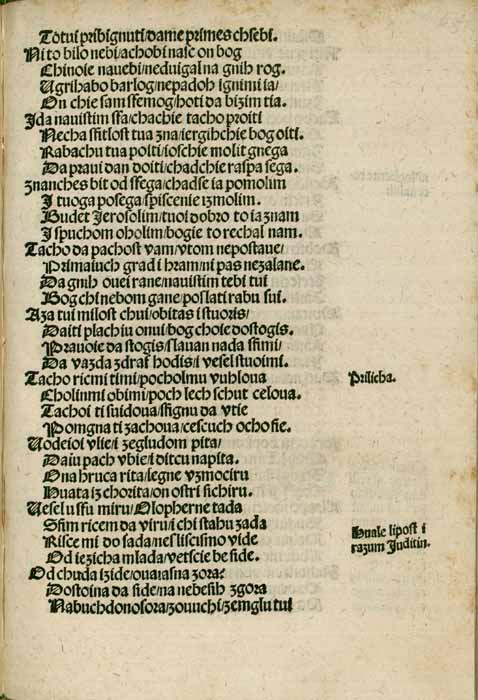 Totvi pribignuti/da me primes chsebi.
Ni to bilo nebi/acho bi nasc on bog
Chinoie nauebi/neduigal na gnih rog.
Ugrihabo barlog/nepadoh ignimi ia/
On chie sam ssemog/hoti da bizim tia.
I da nauistim ssa/chachie tacho proiti
Necha ssitlost tua zna/iergihchie bog oiti.
Rabachu tua poiti/ioschie molit gnega
Da praui dan doiti/chadchie raspa sega.
Znanches bit od ssega/chadse ia pomolim
I tuoga posega/spiscenie izmolim.
Budet Jerosolim/tuoi dobro to ia znam
I spuchom oholim/bogie to rechal nam.
Tacho da pachost vam/vtom nepostaue/
Primaiuch grad i hram/ni pas nezalane.
Da gnih ouei rane/nauistim tebi tui
Bog chi nebom gane/poslati rabu sui.
Aza tui milost chui/obitas istuoris/
Daiti plach iu onui/bog choie dostogis.
Prauoie da stogis/slauan nada ssimi/
Da vazda zdraf hodis/i vesel stuoimi.
Tacho ricmi timi/pocholmu vuhloua
Cholinmi obimi/poch lech schut celoua.
Tachoi ti suidoua/ssignu da vtie
Pomgna ti zachoua/cescuch ocho sie.
Uodeioi vlie/i zegludom pita/
Daiu pach vbie/i ditcu napita.
Ona hruca rita/legne vzmociru
Huata iz chorita/on ostri sichiru.
Uesel u ssu miru/Olopherne tada
Ssim ricem da viru/i chi stahu zada
Risce mi do sada/nesliscismo vide
Od iezicha mlada/vetscie be side.
Od chuda izide/oua iasna zora?
Dostoina da side/na nebesih zgora
Nabuchdonosora/zouuchi/zemglu tui
Prilicha.
Huale lipost i
razum Juditin.